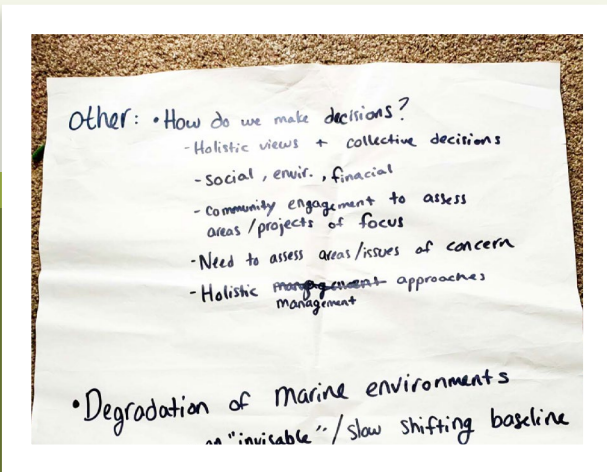 other: • How do we make decisions?
- Holistic views + collective decisions
- social, envir., finacial
- community engagement to assess
areas/projects of focus
- Need to assess areas/issues of concern
- Holistic approaches
management
• Degradation of marine environments
"invisable"/slow shifting baseline